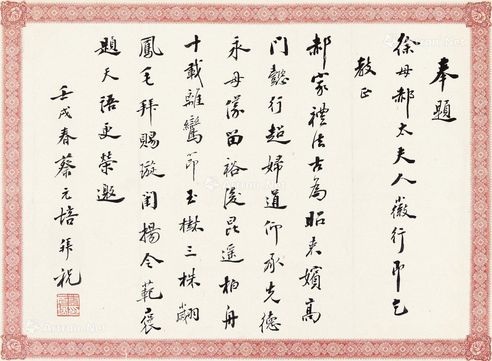 奉題
徐母郝太夫人徽行即乞
教正
郝家禮法古爲昭來嬪高
門懿行超婦道仰承先德
永母儀留裕後昆遥柏舟
十載離鸞節玉樹三株翽
鳳毛拜賜璇閨揚令範褒
題天語更榮邀
壬戌春蔡元培拜祝